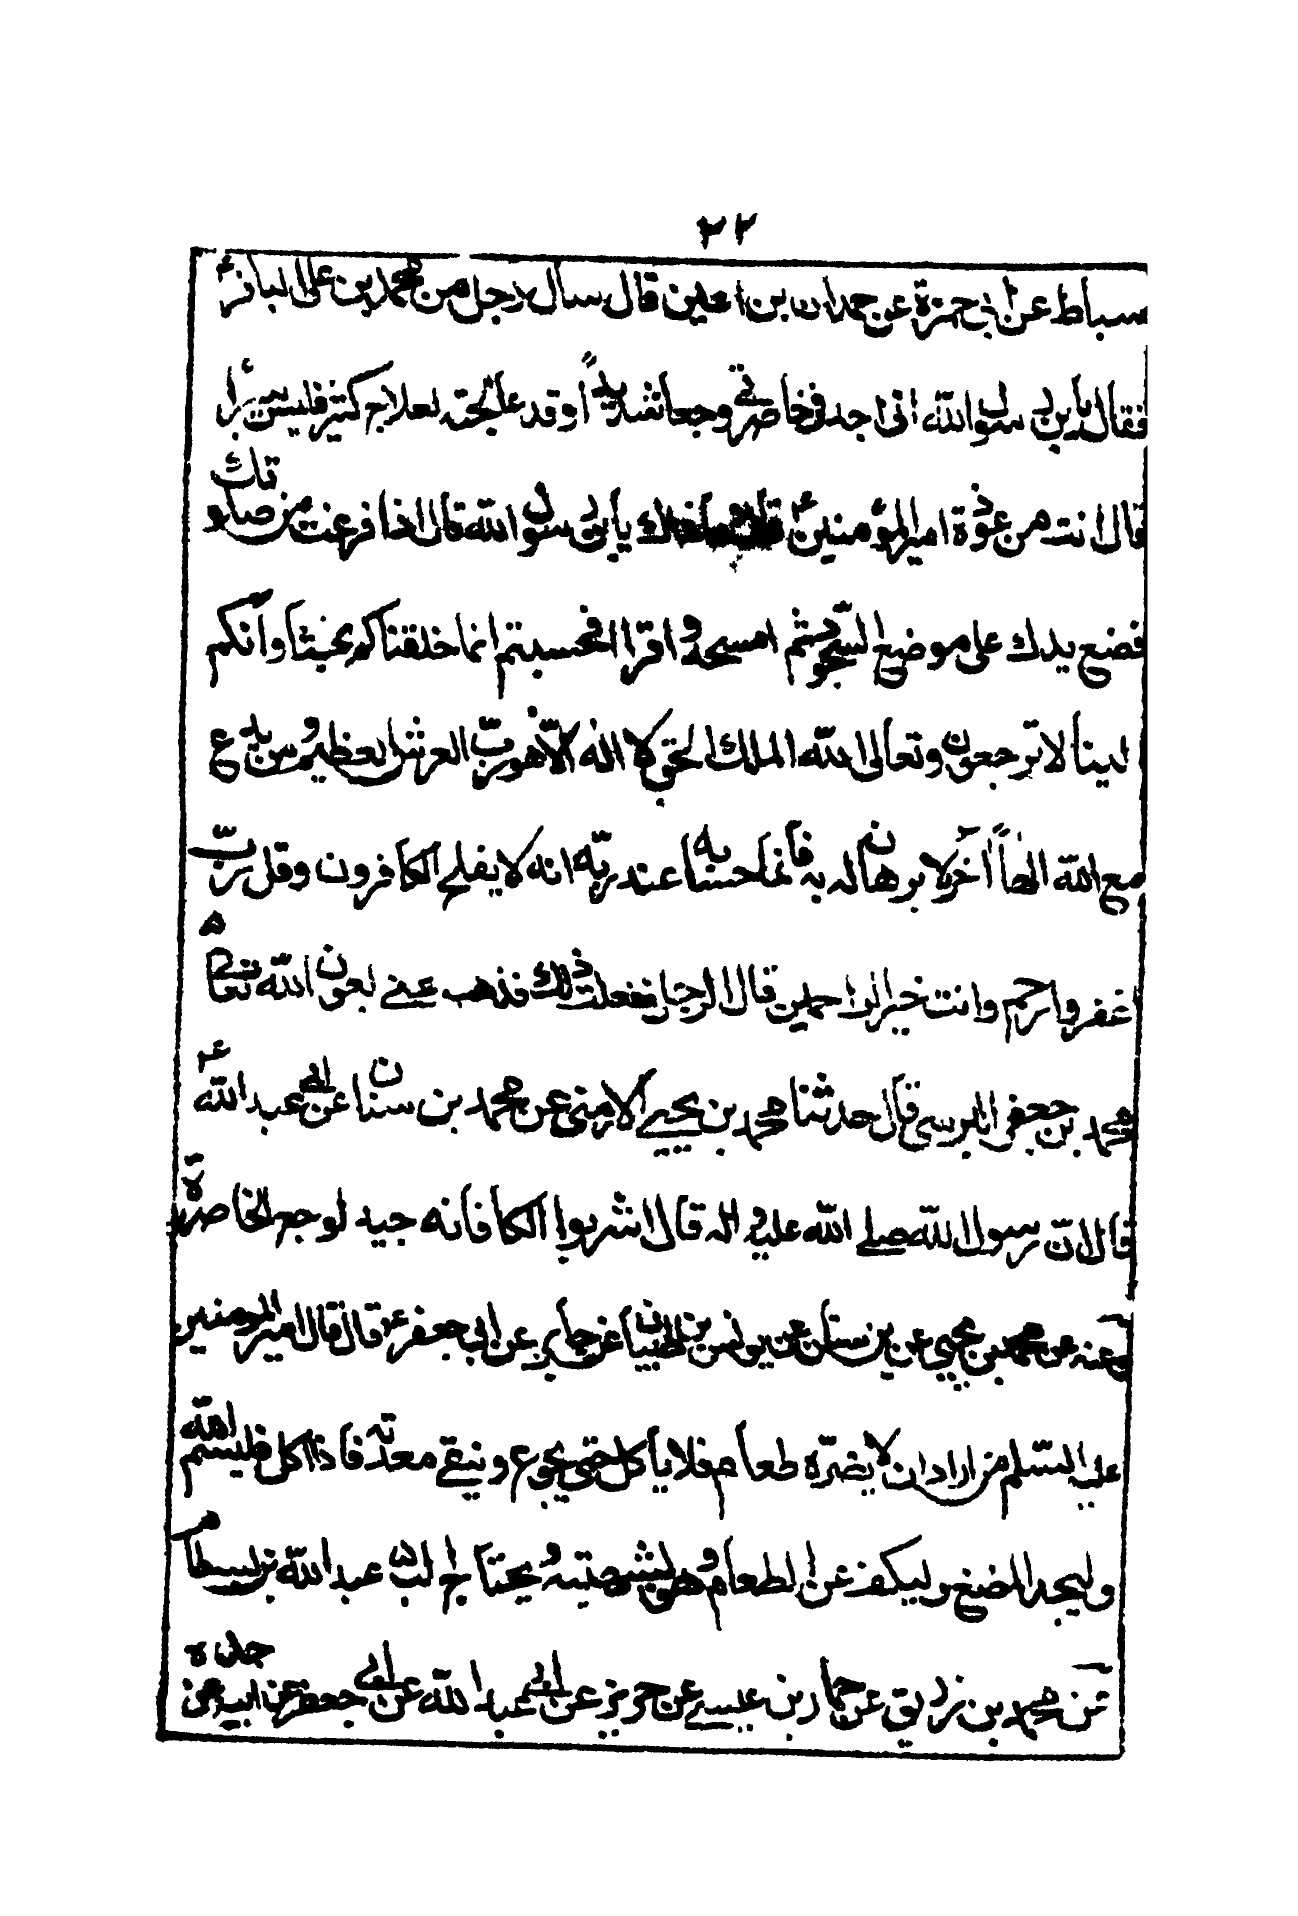 ٢٢
سباط عن ابى حمزة عن حمدان بن اعين قال سال رجل من محمد بن على الباقر ع
فقال يابن رسول الله انى اجد فى خاصرتى وجعا شديداً وقد عالجته لعلاج كثير فليس يبرأ
قال انت من عوذة امير المؤمنين ع قال يابن رسول الله قال اذا فرغت من صلوتك
فضع يدك على موضع السجود ثم امسحه واقرا افحسبتم انما خلقناكم عبثا وانكم
لينا لا ترجعون وتعالى الله الملك الحق لا اله الا هو رب العرش العظيم ومن يدع
مع الله الهاً آخر لا برهان له به فانما حسابه عند ربه انه لا يفلح الكافرون وقل رب
اغفر وارحم وانت خير الراحمين قال الرجل ففعلت ذلك فذهب عنى بعون الله تعالى
محمد بن جعفر البرسى قال حدثنا محمد بن يحيى الارمنى عن محمد بن سنان عن ابى عبد الله ع
قال ان رسول الله صلى الله عليه واله قال اشربوا الكافانه جيد لوجع الخاصرة
وعنه عن محمد بن يحيى عن بن سنان عن يونس بن ظبيان عن جابر عن ابى جعفر ع قال قال امير المومنين
عليه السلم من اراد ان لا يضره طعام فلا ياكل حتى يجوع وتنقى معدته فاذا اكل فليسم الله
وليجد المضغ وليكف عن الطعام وهو يشتهيه ويحتاج اليه عبد الله بن بسطام
عن محمد بن زريق عن حماد بن عيسى عن حريز عن ابى عبد الله عن ابى جعفر عن ابيه عن جده